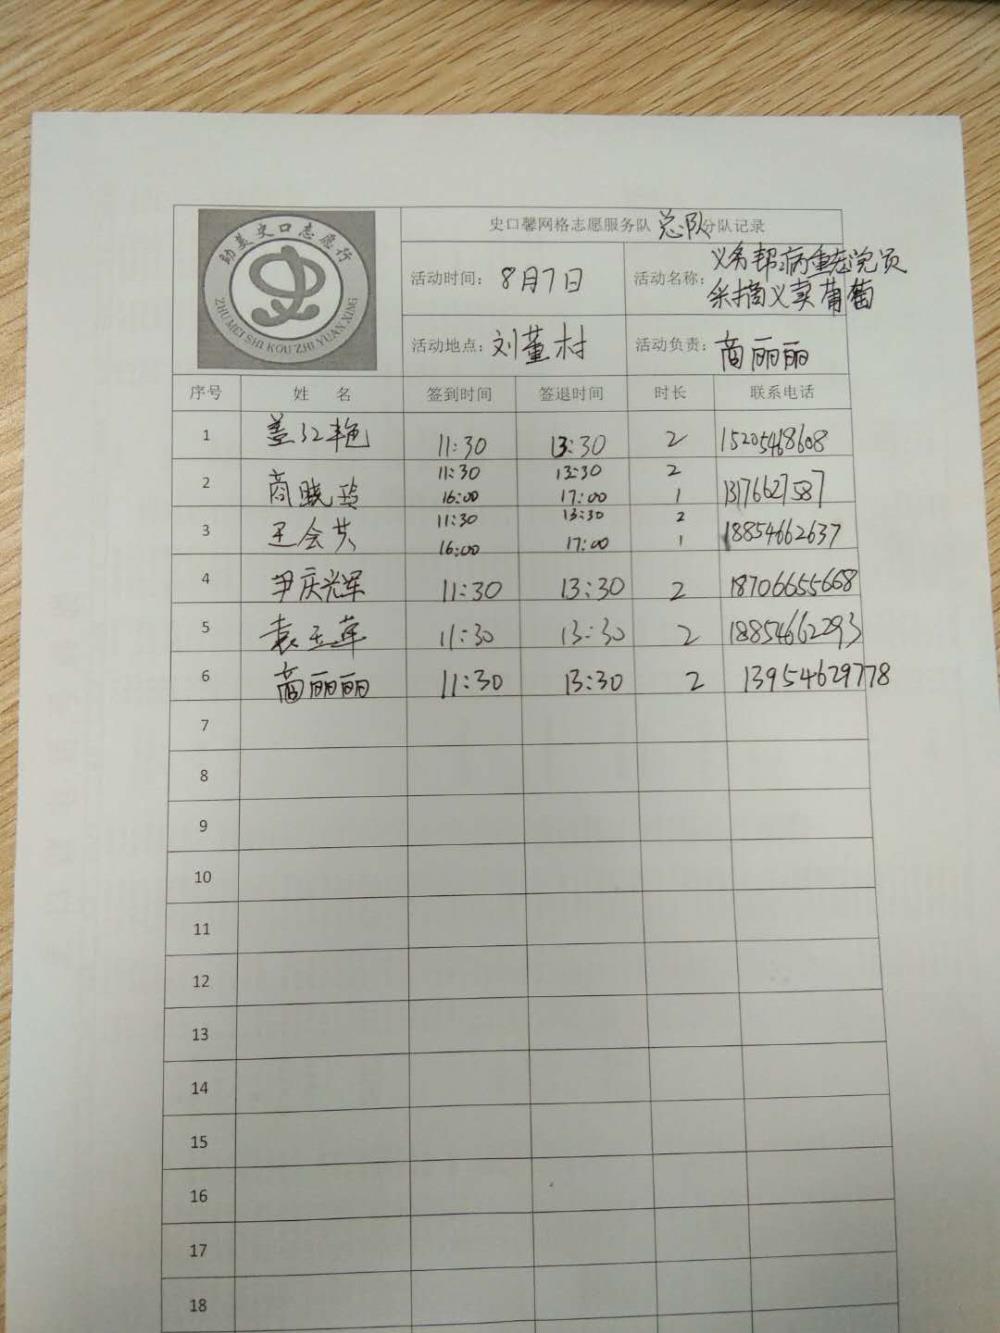 助美史口志愿行
ZHU MEI SHI KOU ZHI YUAN XING
史口馨网格志愿服务队 总队 分队记录
活动时间： 8月7日
活动名称： 义务帮病重老党员
采摘义卖葡萄
活动地点： 刘董村
活动负责： 商丽丽
序号 姓 名 签到时间 签退时间 时长 联系电话
1 盖红艳 11:30 13:30 2 15205468608
2 商晓玲 11:30 13:30 2 13176627587
16:00 17:00 1
3 王会芳 11:30 13:30 2 18854662637
16:00 17:00 1
4 尹庆光军 11:30 13:30 2 18706655668
5 袁玉革 11:30 13:30 2 18854662293
6 商丽丽 11:30 13:30 2 13954629778
7
8
9
10
11
12
13
14
15
16
17
18